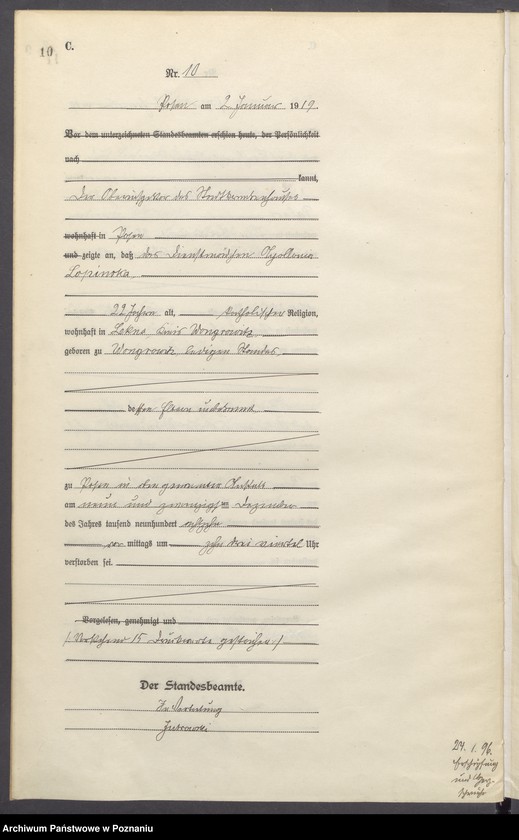 10
C.
Nr. 10
Posen am 2 Januar 1919.
Vor dem unterzeichneten Standesbeamten erschien heute, der Persönlichkeit
nach
kannt,
Der Oberinspektor des Stadtkrankenhauses
wohnhaft in Posen
und zeigte an, daß das Dienstmädchen Apollonia
Lopinska,
22 Jahre alt, katholischer Religion,
wohnhaft in Lekno, Kreis Wongrowitz
geboren zu Wongrowitz, ledigen Standes
dessen Eltern unbekannt
zu Posen in der genannten Anstalt
am neun und zwanzigsten Dezember
des Jahres tausend neunhundert achtzehn
vor mittags um zehn drei viertel Uhr
verstorben sei.
Vorgelesen, genehmigt und
/Vorstehend 15 Druckworte gestrichen./
Der Standesbeamte.
In Vertretung
24. 1. 96.
und
Archiwum Państwowe w Poznaniu